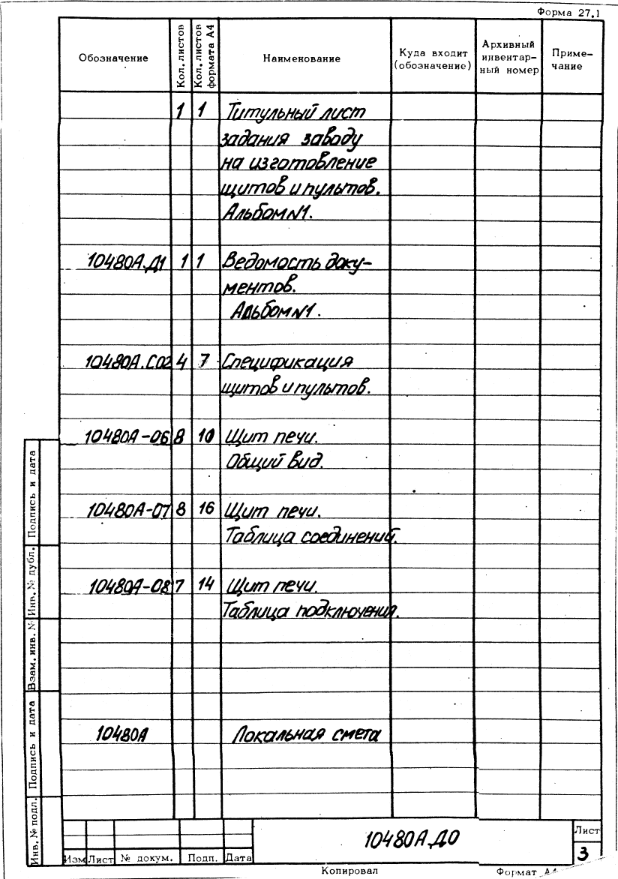 Форма 27.1
Обозначение Кол. листов Кол. листов формата А4 Наименование Куда входит (обозначение) Архивный инвентарный номер Примечание
1 1 Титульный лист
задания заводу
на изготовление
щитов и пультов.
Альбом №1.
10480А.Д1 1 1 Ведомость доку-
ментов.
Альбом №1.
10480А.С02 4 7 Спецификация
щитов и пультов.
10480А-06 8 10 Щит печи.
Общий вид.
10480А-07 8 16 Щит печи.
Таблица соединений.
10480А-08 7 14 Щит печи.
Таблица подключения.
10480А Локальная смета
Инв. № подл. Подпись и дата Взам. инв. № Инв. № дубл. Подпись и дата
10480А.Д0
Лист
3
Изм Лист № докум. Подп. Дата
Копировал Формат А4